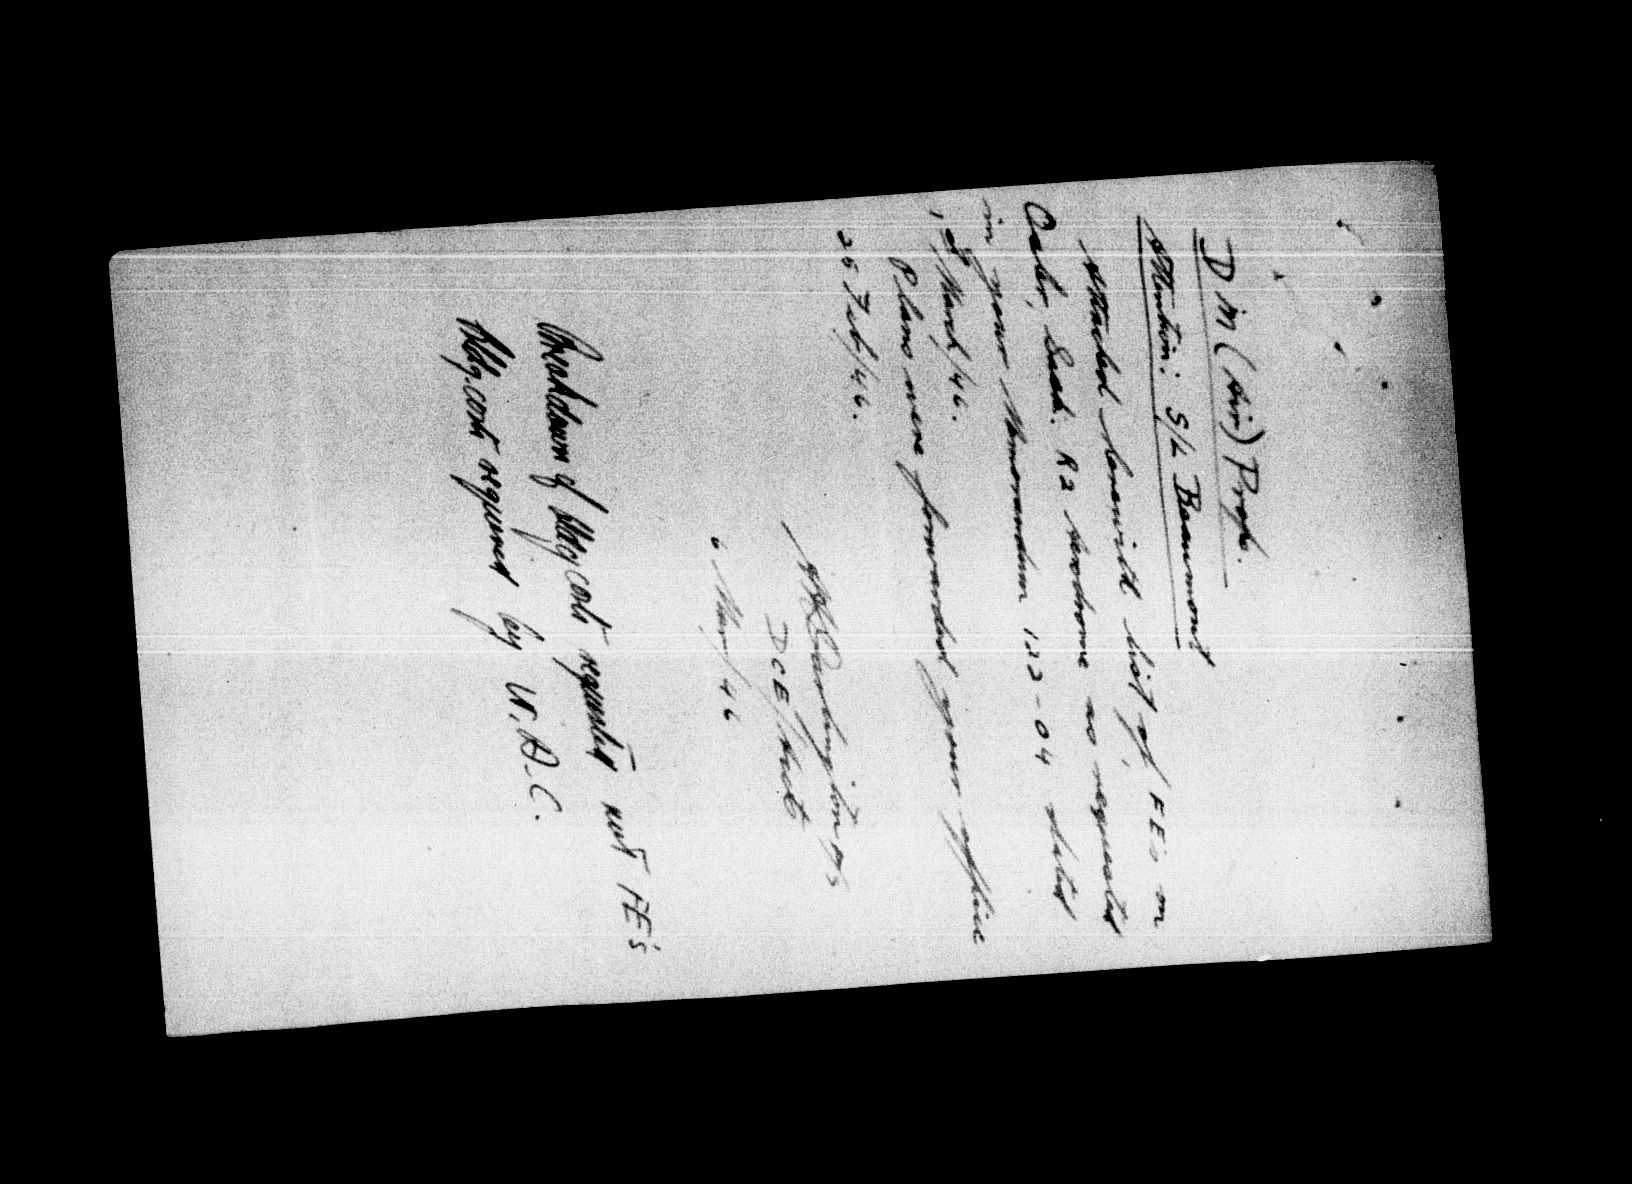 D M (Air) Prop.
Attention: S/L Beaumont
Attached herewith list of FEs on
Oaks, Sask. R2 Aerodrome as requested
in your Memorandum 122-04 dated
1st March/46.
Plans were forwarded your office
25 Feb/46.
DCE/
6 Mar/46
Breakdown of Bldg costs requested not FE's
Bldg. costs required by W.A.C.